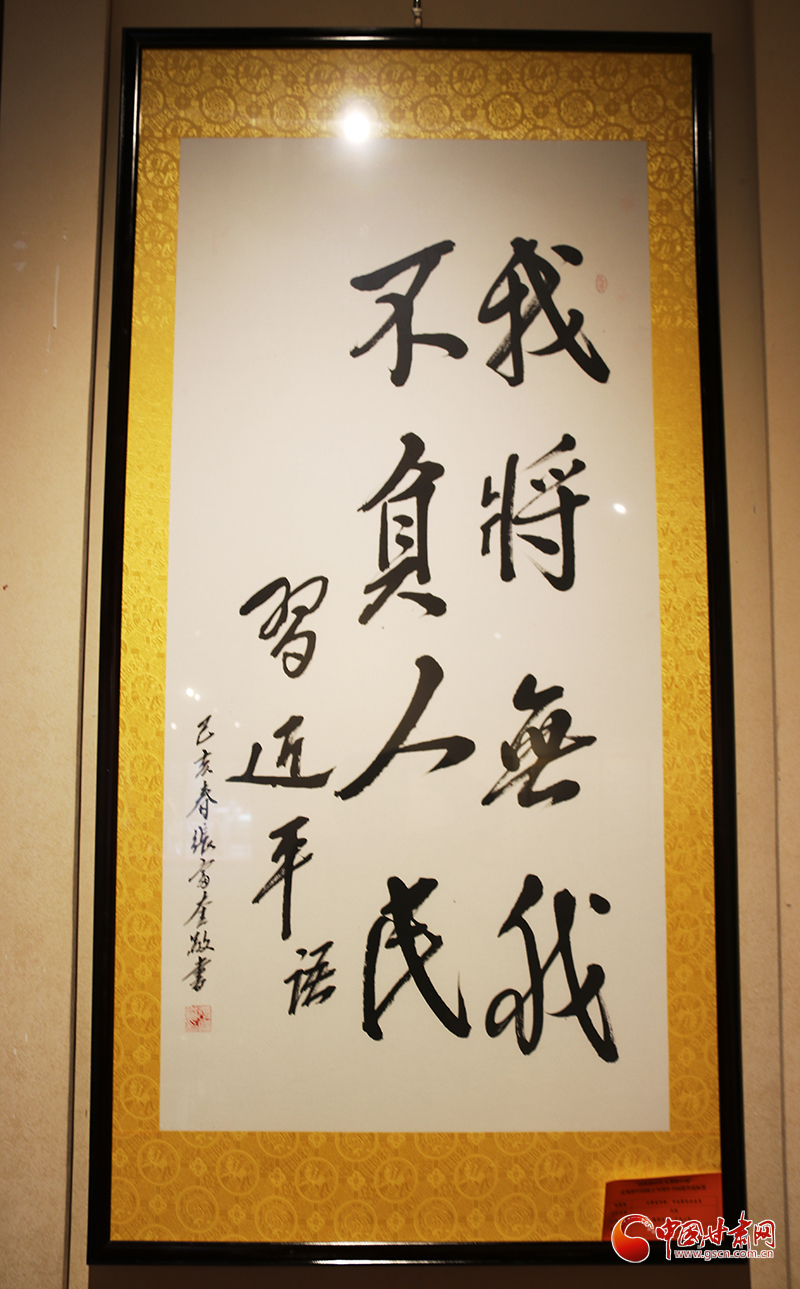 我將無我
不負人民
習近平語
己亥春張富奎敬書
中国甘肃网
www.gscn.com.cn